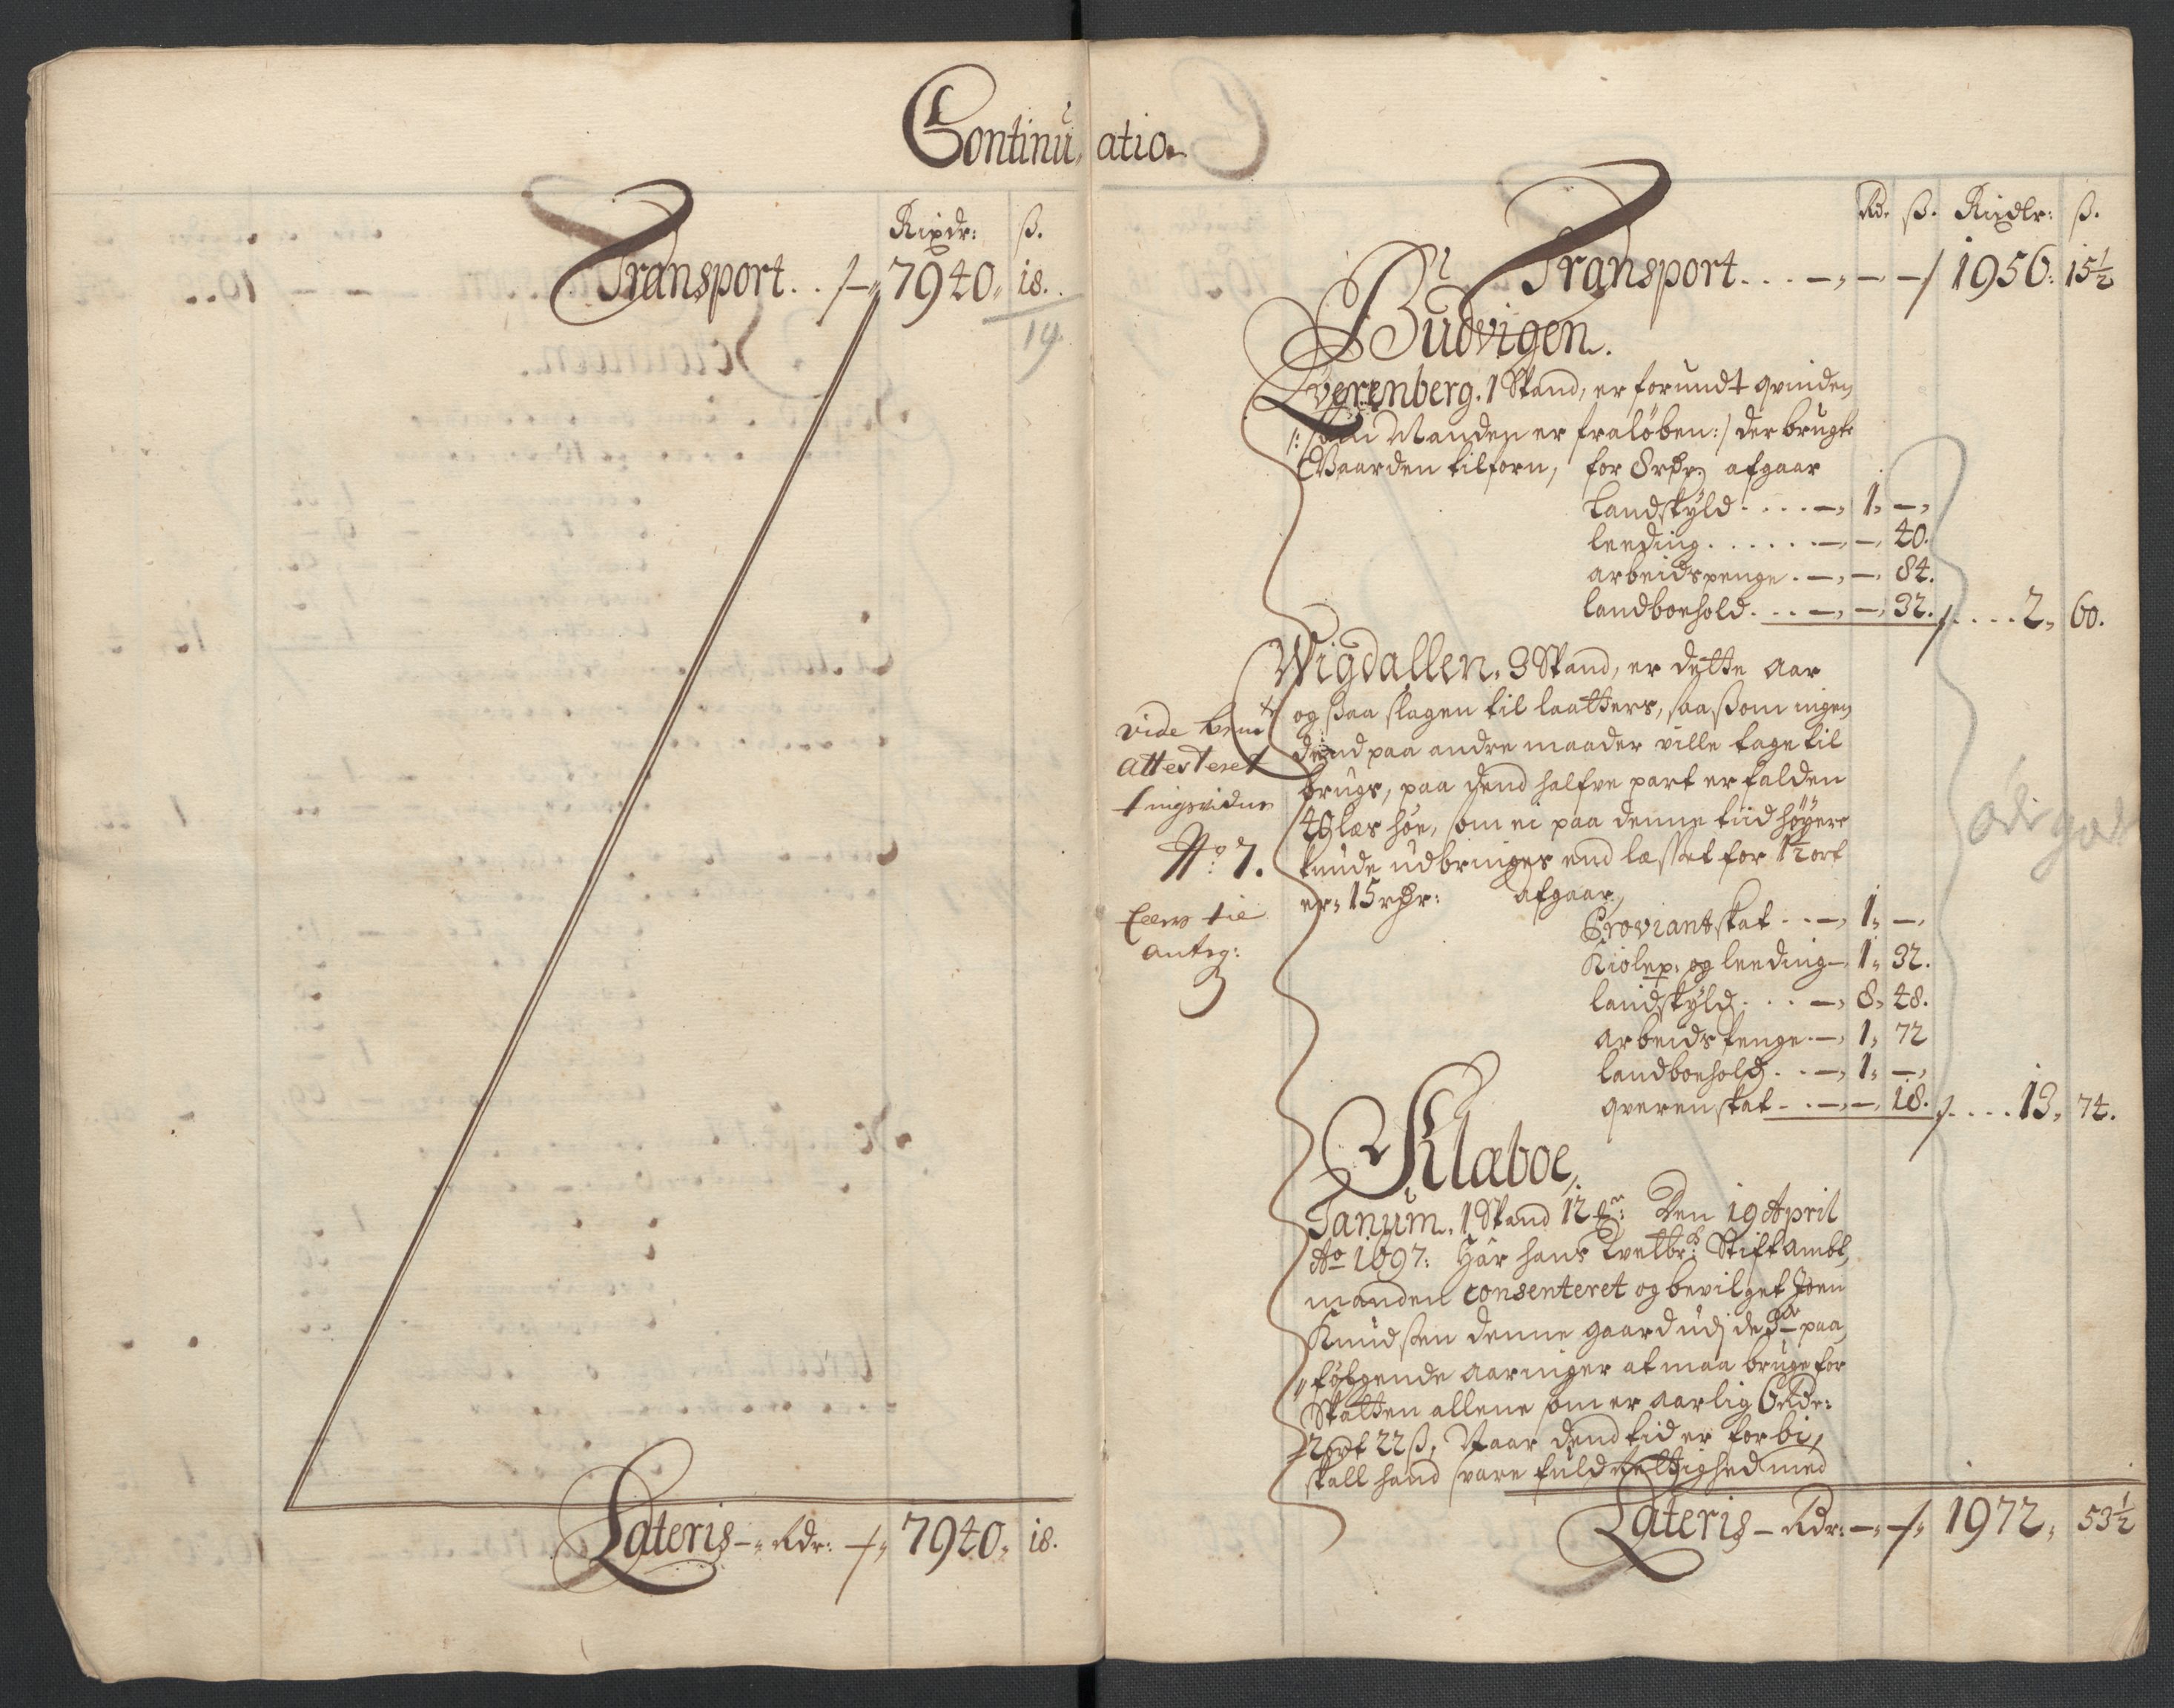 Continuatio
Rixdr: ß.
Transport . . 7940. 18.
19
Lateris Rdr: 7940. 18.
Rd. ß. Rixdlr: ß.
Transport. . . . 1956: 15½
Budvigen.
Qverenberg. 1 Spand, er forundt qvinden
/: som Manden er fraløben:/ der brugte
Gaarden tilforn, for 8 rdr, afgaar
Landskyld. . . . 1, —
Leeding. . . . . . — 40.
arbeidspenge. — 84.
Landboehold. . . — 32. . . . . 2, 60.
Wigdallen. 3 Spand, er dette aar
og paa slagen til laatters, saasom ingen
dend paa andre maader ville tage til
brugs, paa dend halfve part er falden
40 læs høe, som ei paa denne tiid høyere
kunde udbringes end læsset for 1½ ort
er, 15 rdr: afgaar,
vide
attesteret
tingsvidne
No 7.
anteg:
Proviantskat . . — 1, —
Kiolep: og leeding — 1, 32.
Landskyld. . . — 8, 48.
arbeidspenge. — 1, 72
Landboehold. . . — 1, —
qverenskat . . — — 18. . . . . 13, 74.
Klæboe,
Tanum. 1 Spand 12 Den 19 April
Ao 1697: Har hans Stiftambt,
manden consenteret og bevilget Joen
Knudsen denne gaard udj de 3de paa
følgende aaringer at maa bruge for
Skatten allene som er aarlig 6 Rdr:
2 ort 22 ß, Naar dend tid er forbi,
skall hand svare fuld rettighed med
Lateris — Rdr: 1972, 53½